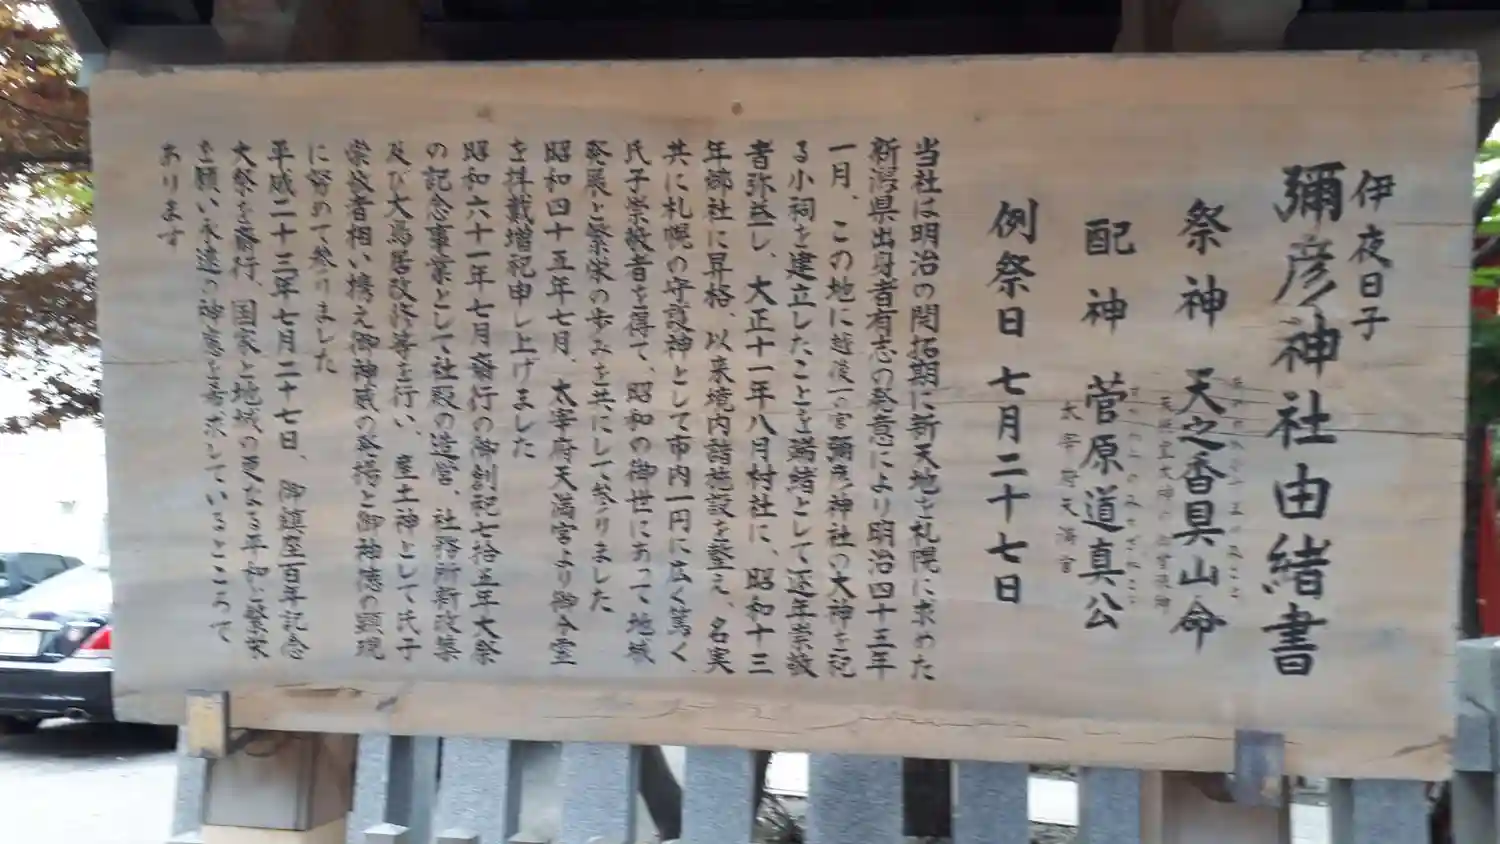 伊夜日子
彌彦神社由緒書
祭神 天之香具山命
天照皇大神の御曽孫神
配神 菅原道真公
太宰府天満宮
例祭日 七月二十七日
当社は明治の開拓期に新天地を札幌に求めた
新潟県出身者有志の発意により明治四十三年
一月、この地に越後一の宮彌彦神社の大神を祀
る小祠を建立したことを端緒として逐年崇敬
者弥益し、大正十一年八月村社に、昭和十三
年郷社に昇格、以来境内諸施設を整え、名実
共に札幌の守護神として市内一円に広く篤く
氏子崇敬者を得て、昭和の御世にあって地域
発展と繁栄の歩みを共にして参りました
昭和四十五年七月、太宰府天満宮より御分霊
を拝戴増祀申し上げました
昭和六十一年七月斎行の御創祀七拾五年大祭
の記念事業として社殿の造営、社務所新改築
及び大鳥居改修等を行い、産土神として氏子
崇敬者相い携え御神威の発揚と御神徳の顕現
に努めて参りました
平成二十三年七月二十七日、御鎮座百年記念
大祭を斎行、国家と地域の更なる平和と繁栄
を願い永遠の神慮を希求しているところで
あります